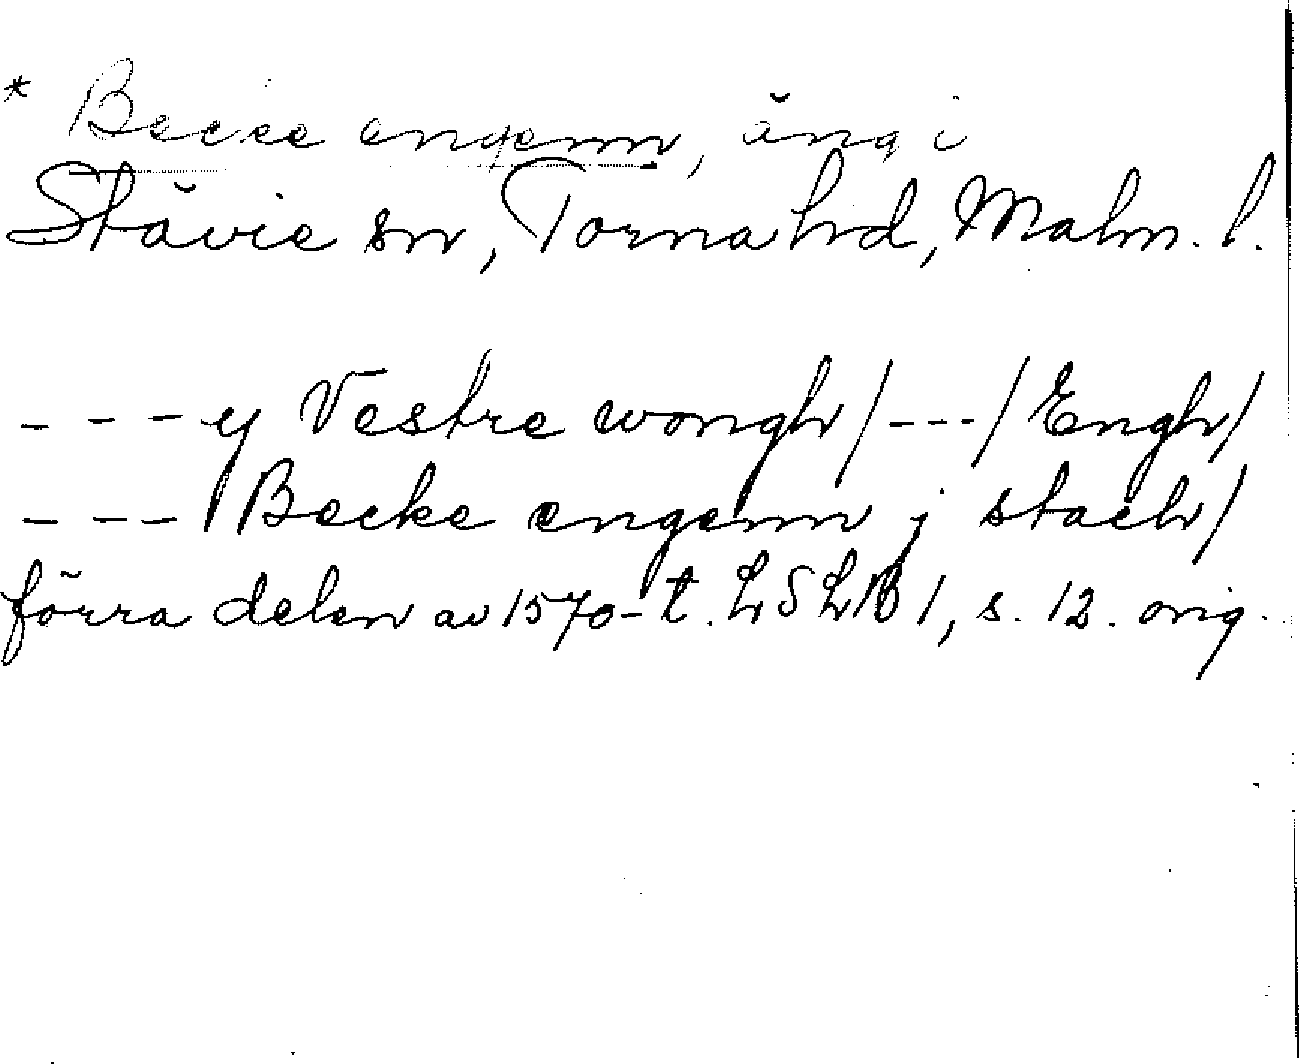 * Becke engenn, äng i
Stävie sn, Torna hd, Malm. l.
- - - y Vestre wongh / - - - / Engh /
- - - / Becke engenn j stach /
förra delen av 1570-t. LSLB 1, s. 12. orig.